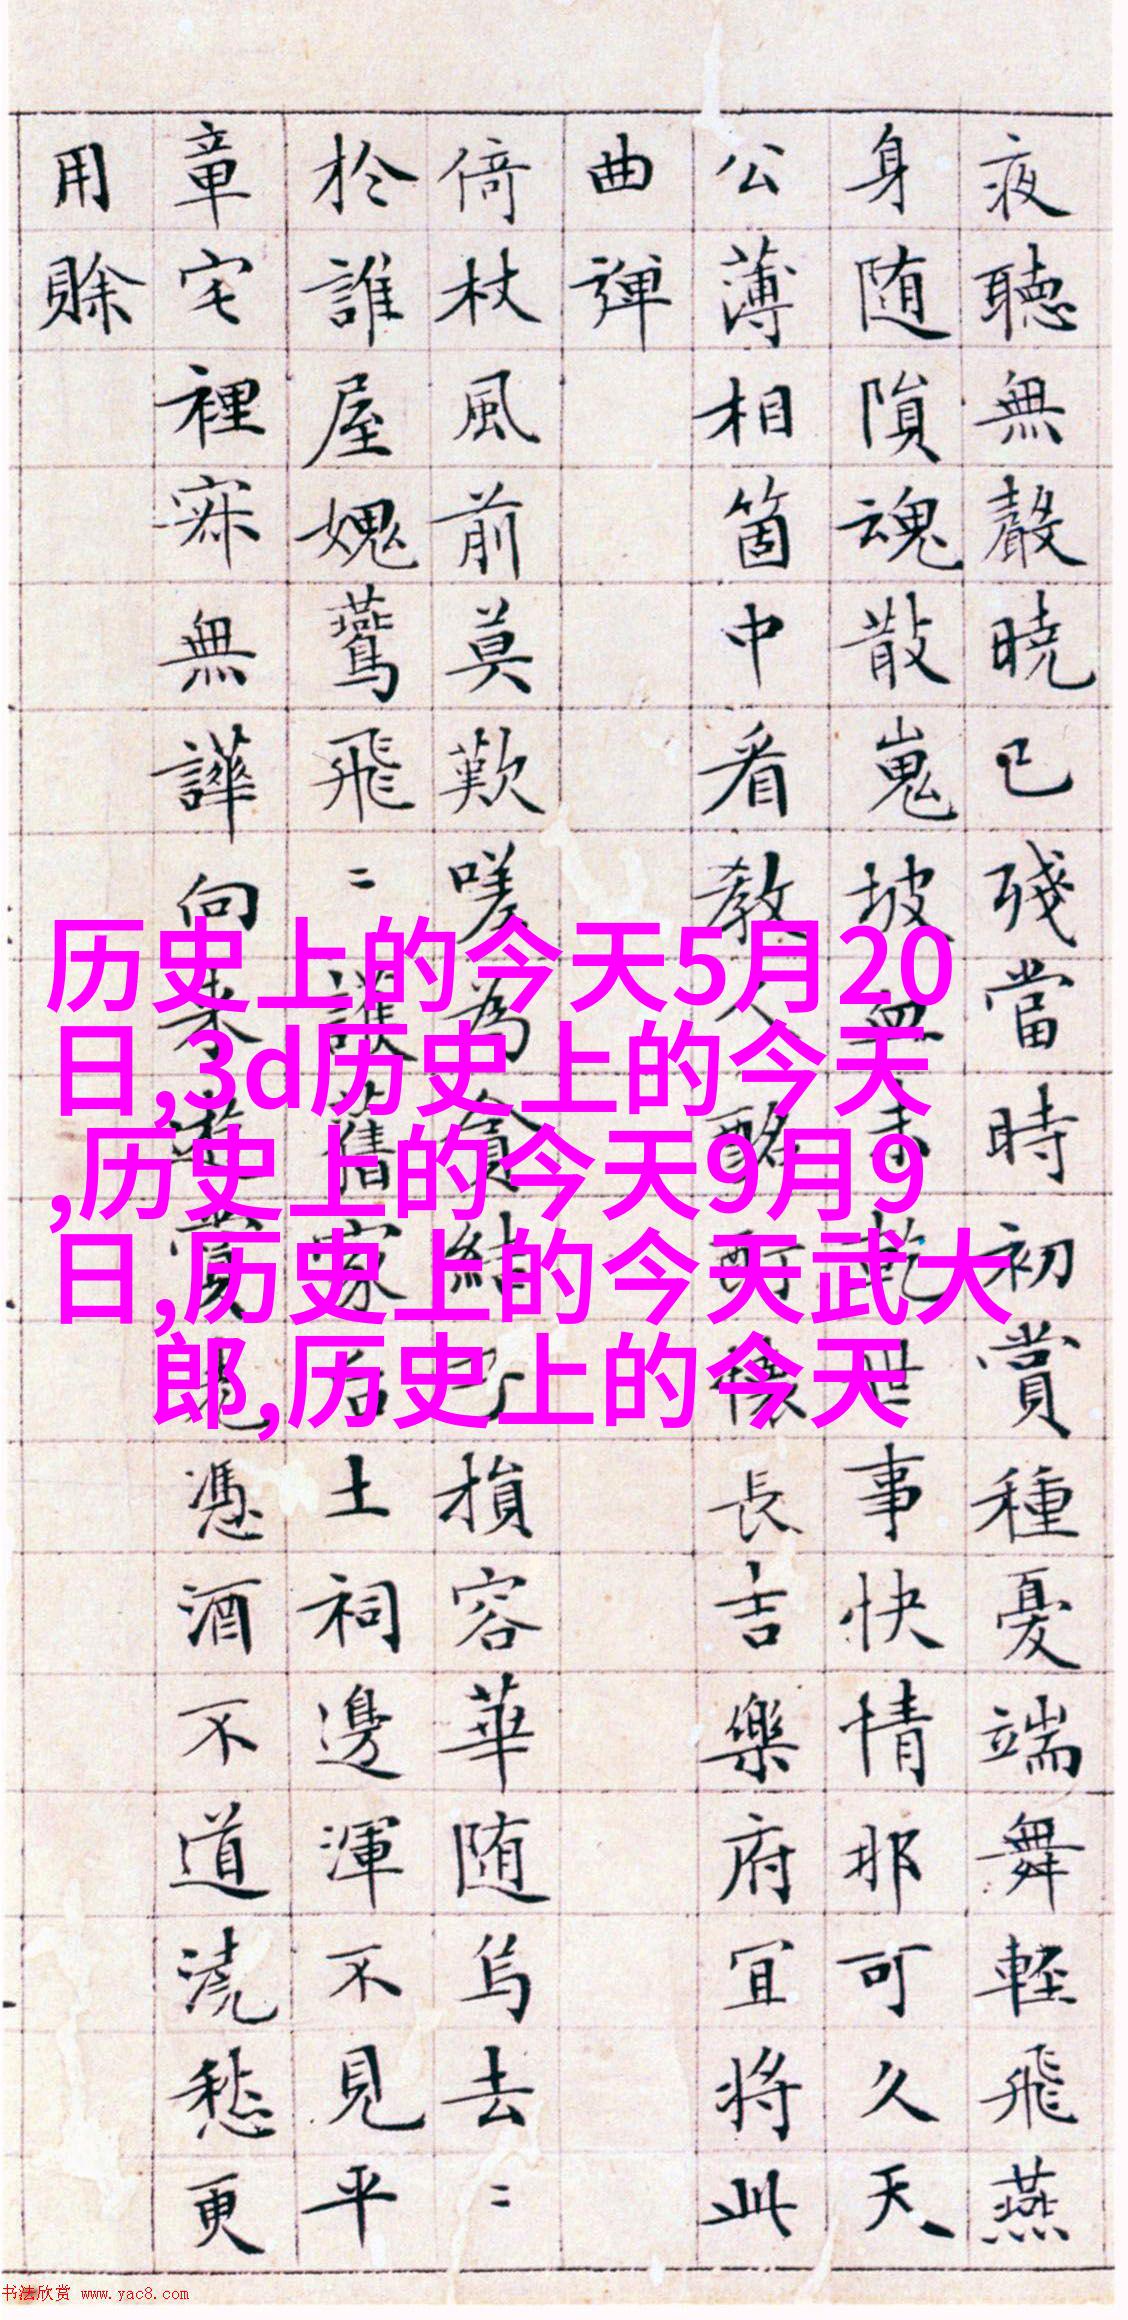 夜聽無聲曉已殘當時初賞種憂端舞輕飛燕
身随隕魂散嵬坡血未乾世事快情那可久天
公薄相箇中看教人酩酊懷長吉樂府宜將此
曲弾
倚杖風前莫歎嗟為貪結損容華随烏去〻
於誰屋媿鷰飛〻舊家右土祠邊渾不見平
章宅裡寂無譁向來遊賞憑酒不道澆愁更
用賒
历史上的今天5月20
日,3d历史上的今天
,历史上的今天9月9
日,历史上的今天武大
郎,历史上的今天
书法欣赏 www.yac8.com